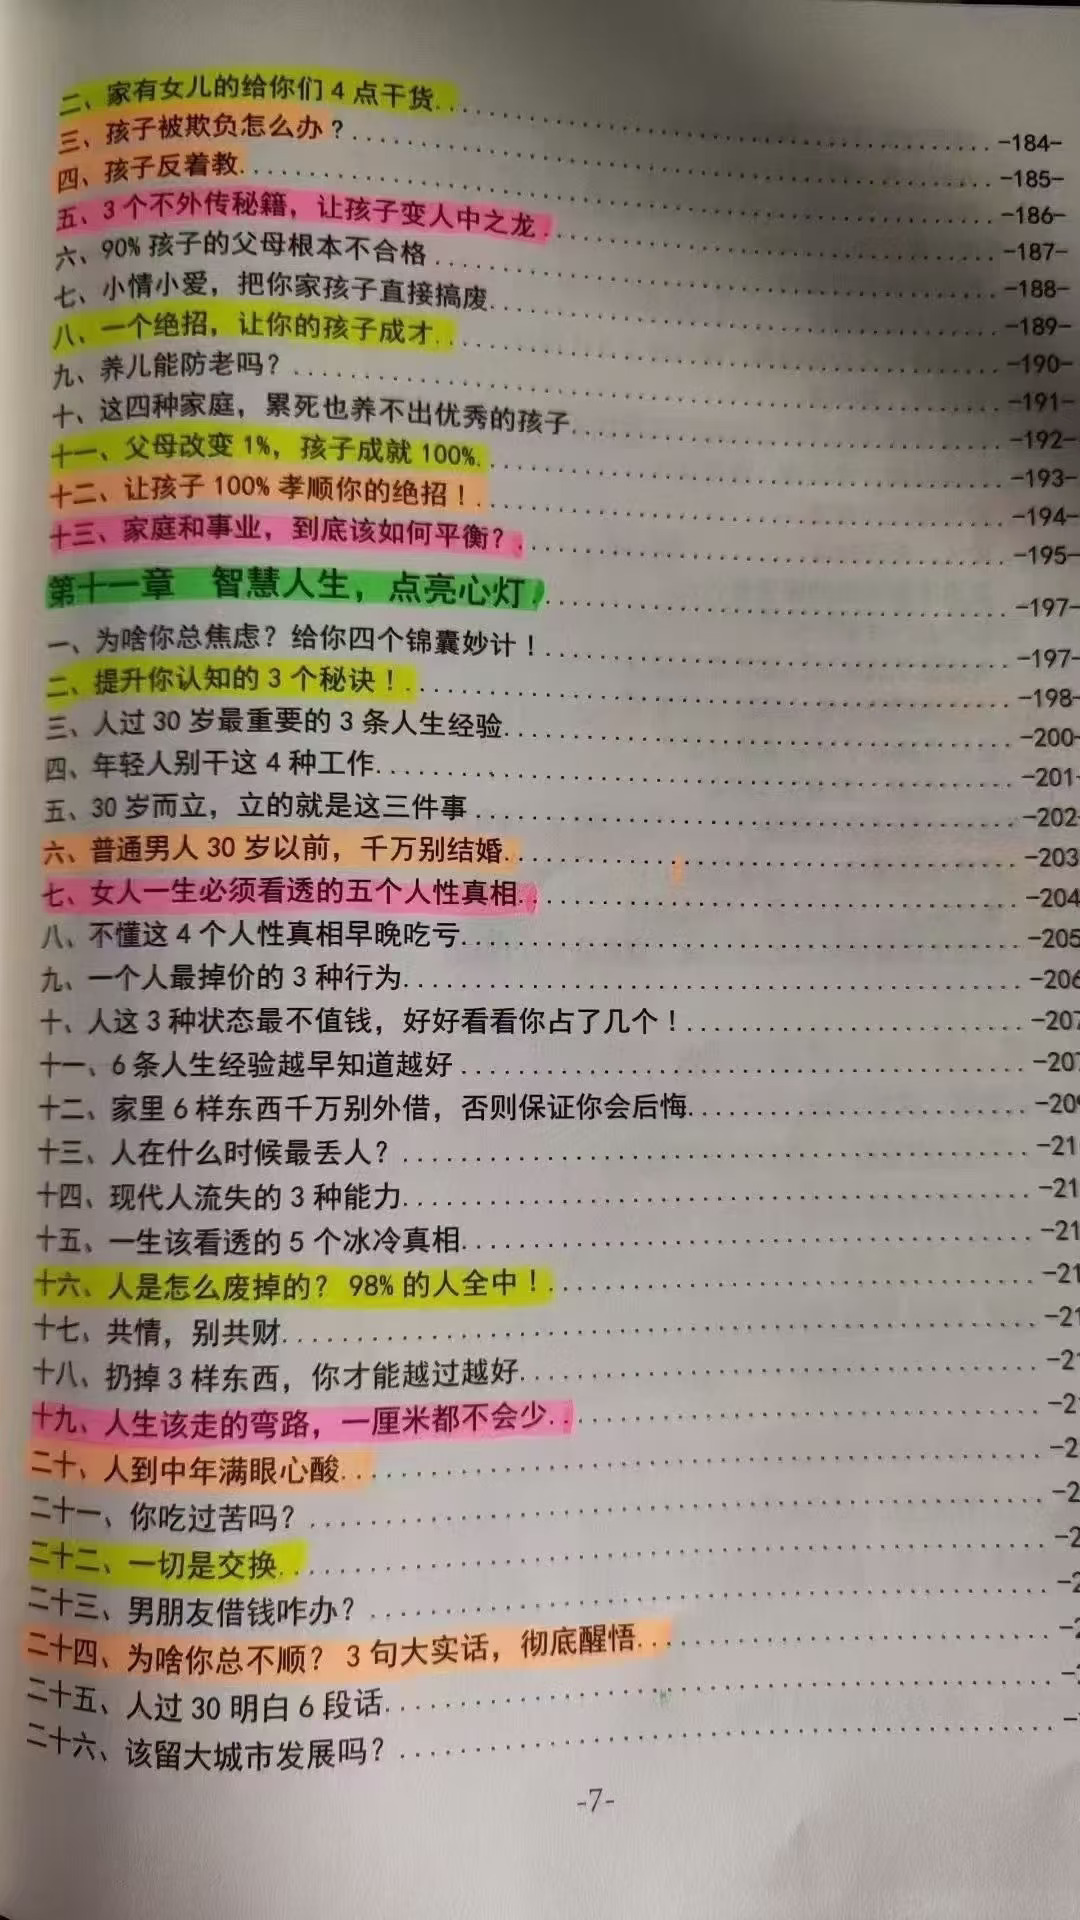 二、家有女儿的给你们4点干货 -184-
三、孩子被欺负怎么办？ -185-
四、孩子反着教 -186-
五、3个不外传秘籍，让孩子变人中之龙 -187-
六、90%孩子的父母根本不合格 -188-
七、小情小爱，把你家孩子直接搞废 -189-
八、一个绝招，让你的孩子成才 -190-
九、养儿能防老吗？ -191-
十、这四种家庭，累死也养不出优秀的孩子 -192-
十一、父母改变1%，孩子成就100% -193-
十二、让孩子100%孝顺你的绝招！ -194-
十三、家庭和事业，到底该如何平衡？ -195-
第十一章 智慧人生，点亮心灯 -197-
一、为啥你总焦虑？给你四个锦囊妙计！ -197-
二、提升你认知的3个秘诀！ -198-
三、人过30岁最重要的3条人生经验 -200-
四、年轻人别干这4种工作 -201-
五、30岁而立，立的就是这三件事 -202-
六、普通男人30岁以前，千万别结婚 -203
七、女人一生必须看透的五个人性真相 -204
八、不懂这4个人性真相早晚吃亏 -205
九、一个人最掉价的3种行为 -206
十、人这3种状态最不值钱，好好看看你占了几个！ -207
十一、6条人生经验越早知道越好 -207
十二、家里6样东西千万别外借，否则保证你会后悔 -209
十三、人在什么时候最丢人？ -21
十四、现代人流失的3种能力 -21
十五、一生该看透的5个冰冷真相 -21
十六、人是怎么废掉的？98%的人全中！ -21
十七、共情，别共财 -21
十八、扔掉3样东西，你才能越过越好 -21
十九、人生该走的弯路，一厘米都不会少 -2
二十、人到中年满眼心酸 -2
二十一、你吃过苦吗？ -2
二十二、一切是交换 -2
二十三、男朋友借钱咋办？ -2
二十四、为啥你总不顺？3句大实话，彻底醒悟
二十五、人过30明白6段话
二十六、该留大城市发展吗？
-7-